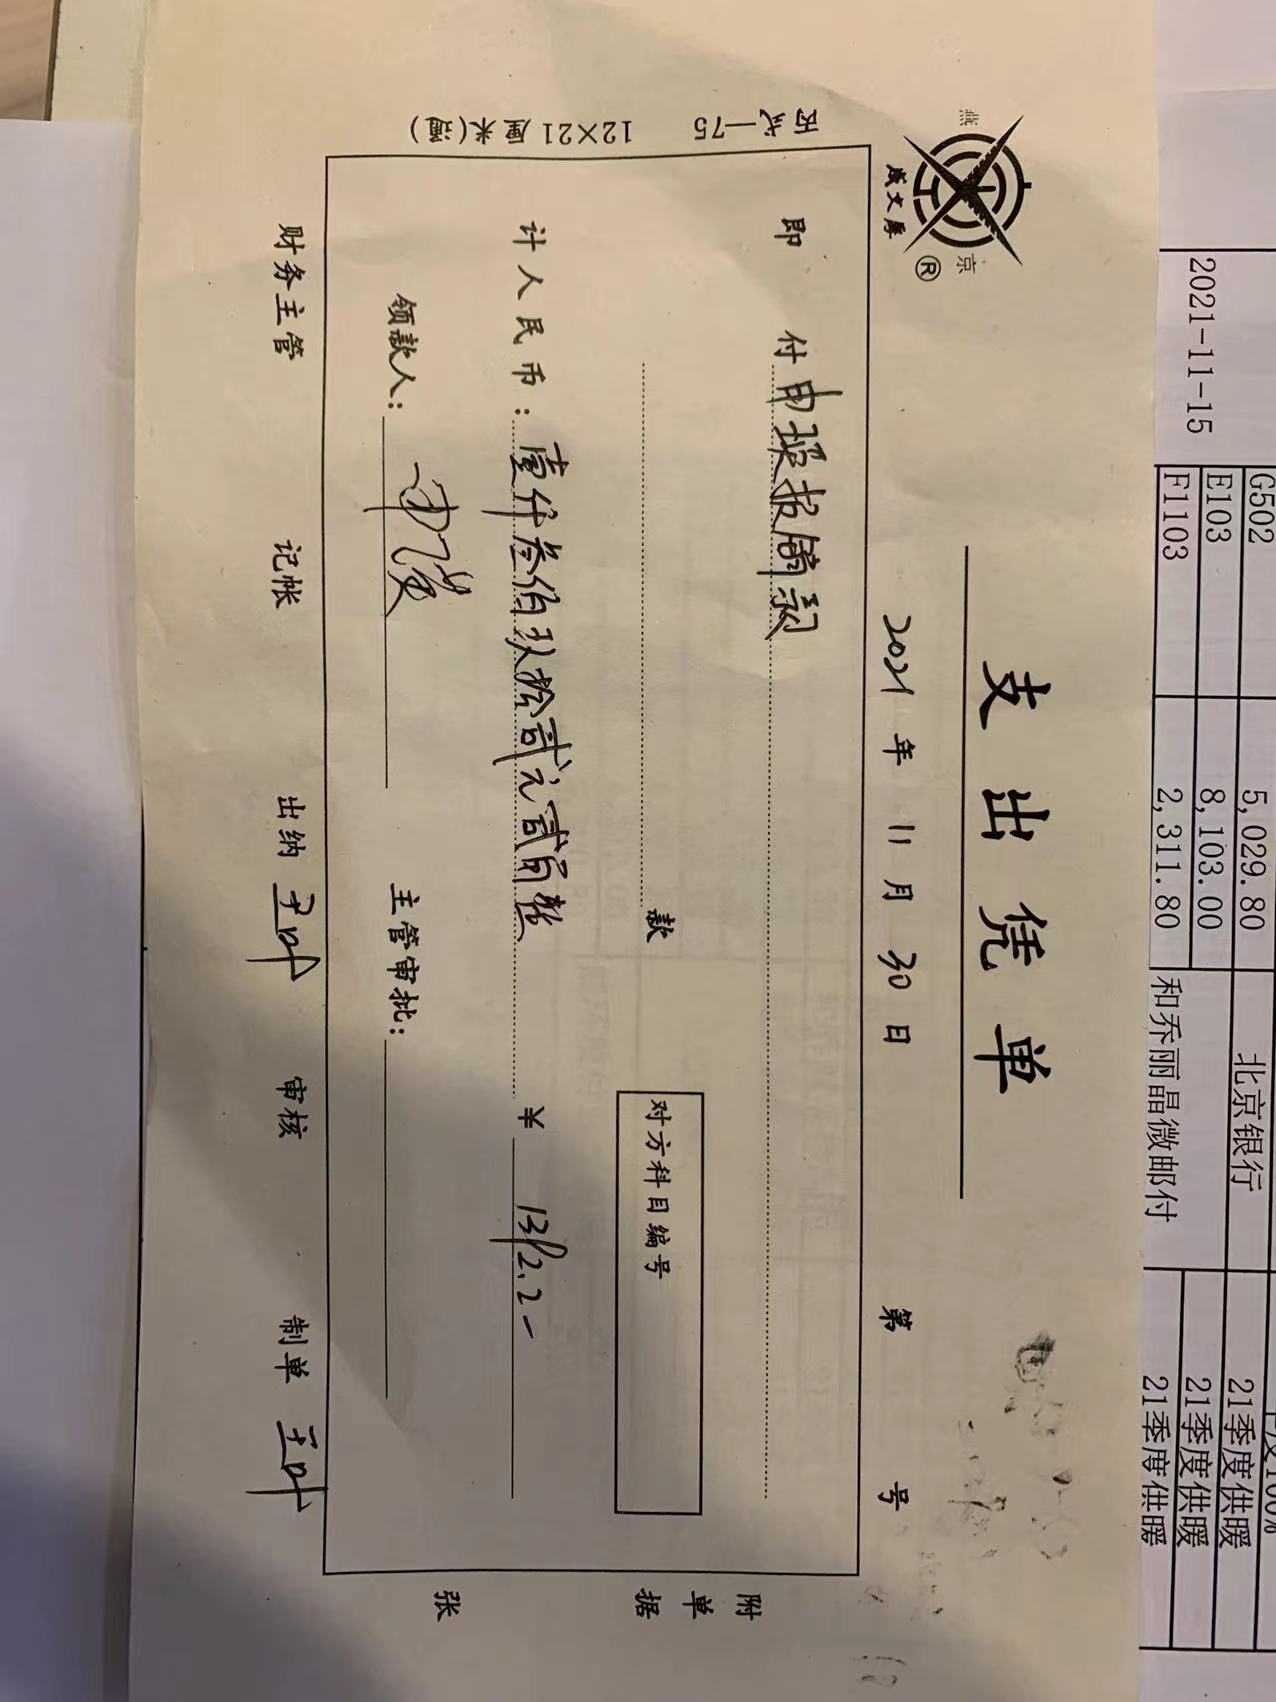 燕 京
成文厚
®
支出凭单
2021年11月30日 第 号
即 付 申瑛报销款
款
对方科目编号
计人民币：壹仟叁佰玖拾贰元贰角整 ¥ 1392.2-
领款人： 主管审批：
财务主管 记帐 出纳 审核 制单
附单据 张
丙式—75 12×21厘米(通)
2021-11-15
G502 5,029.80 北京银行 21季度供暖
E103 8,103.00 21季度供暖
F1103 2,311.80 和乔丽晶微邮付 21季度供暖